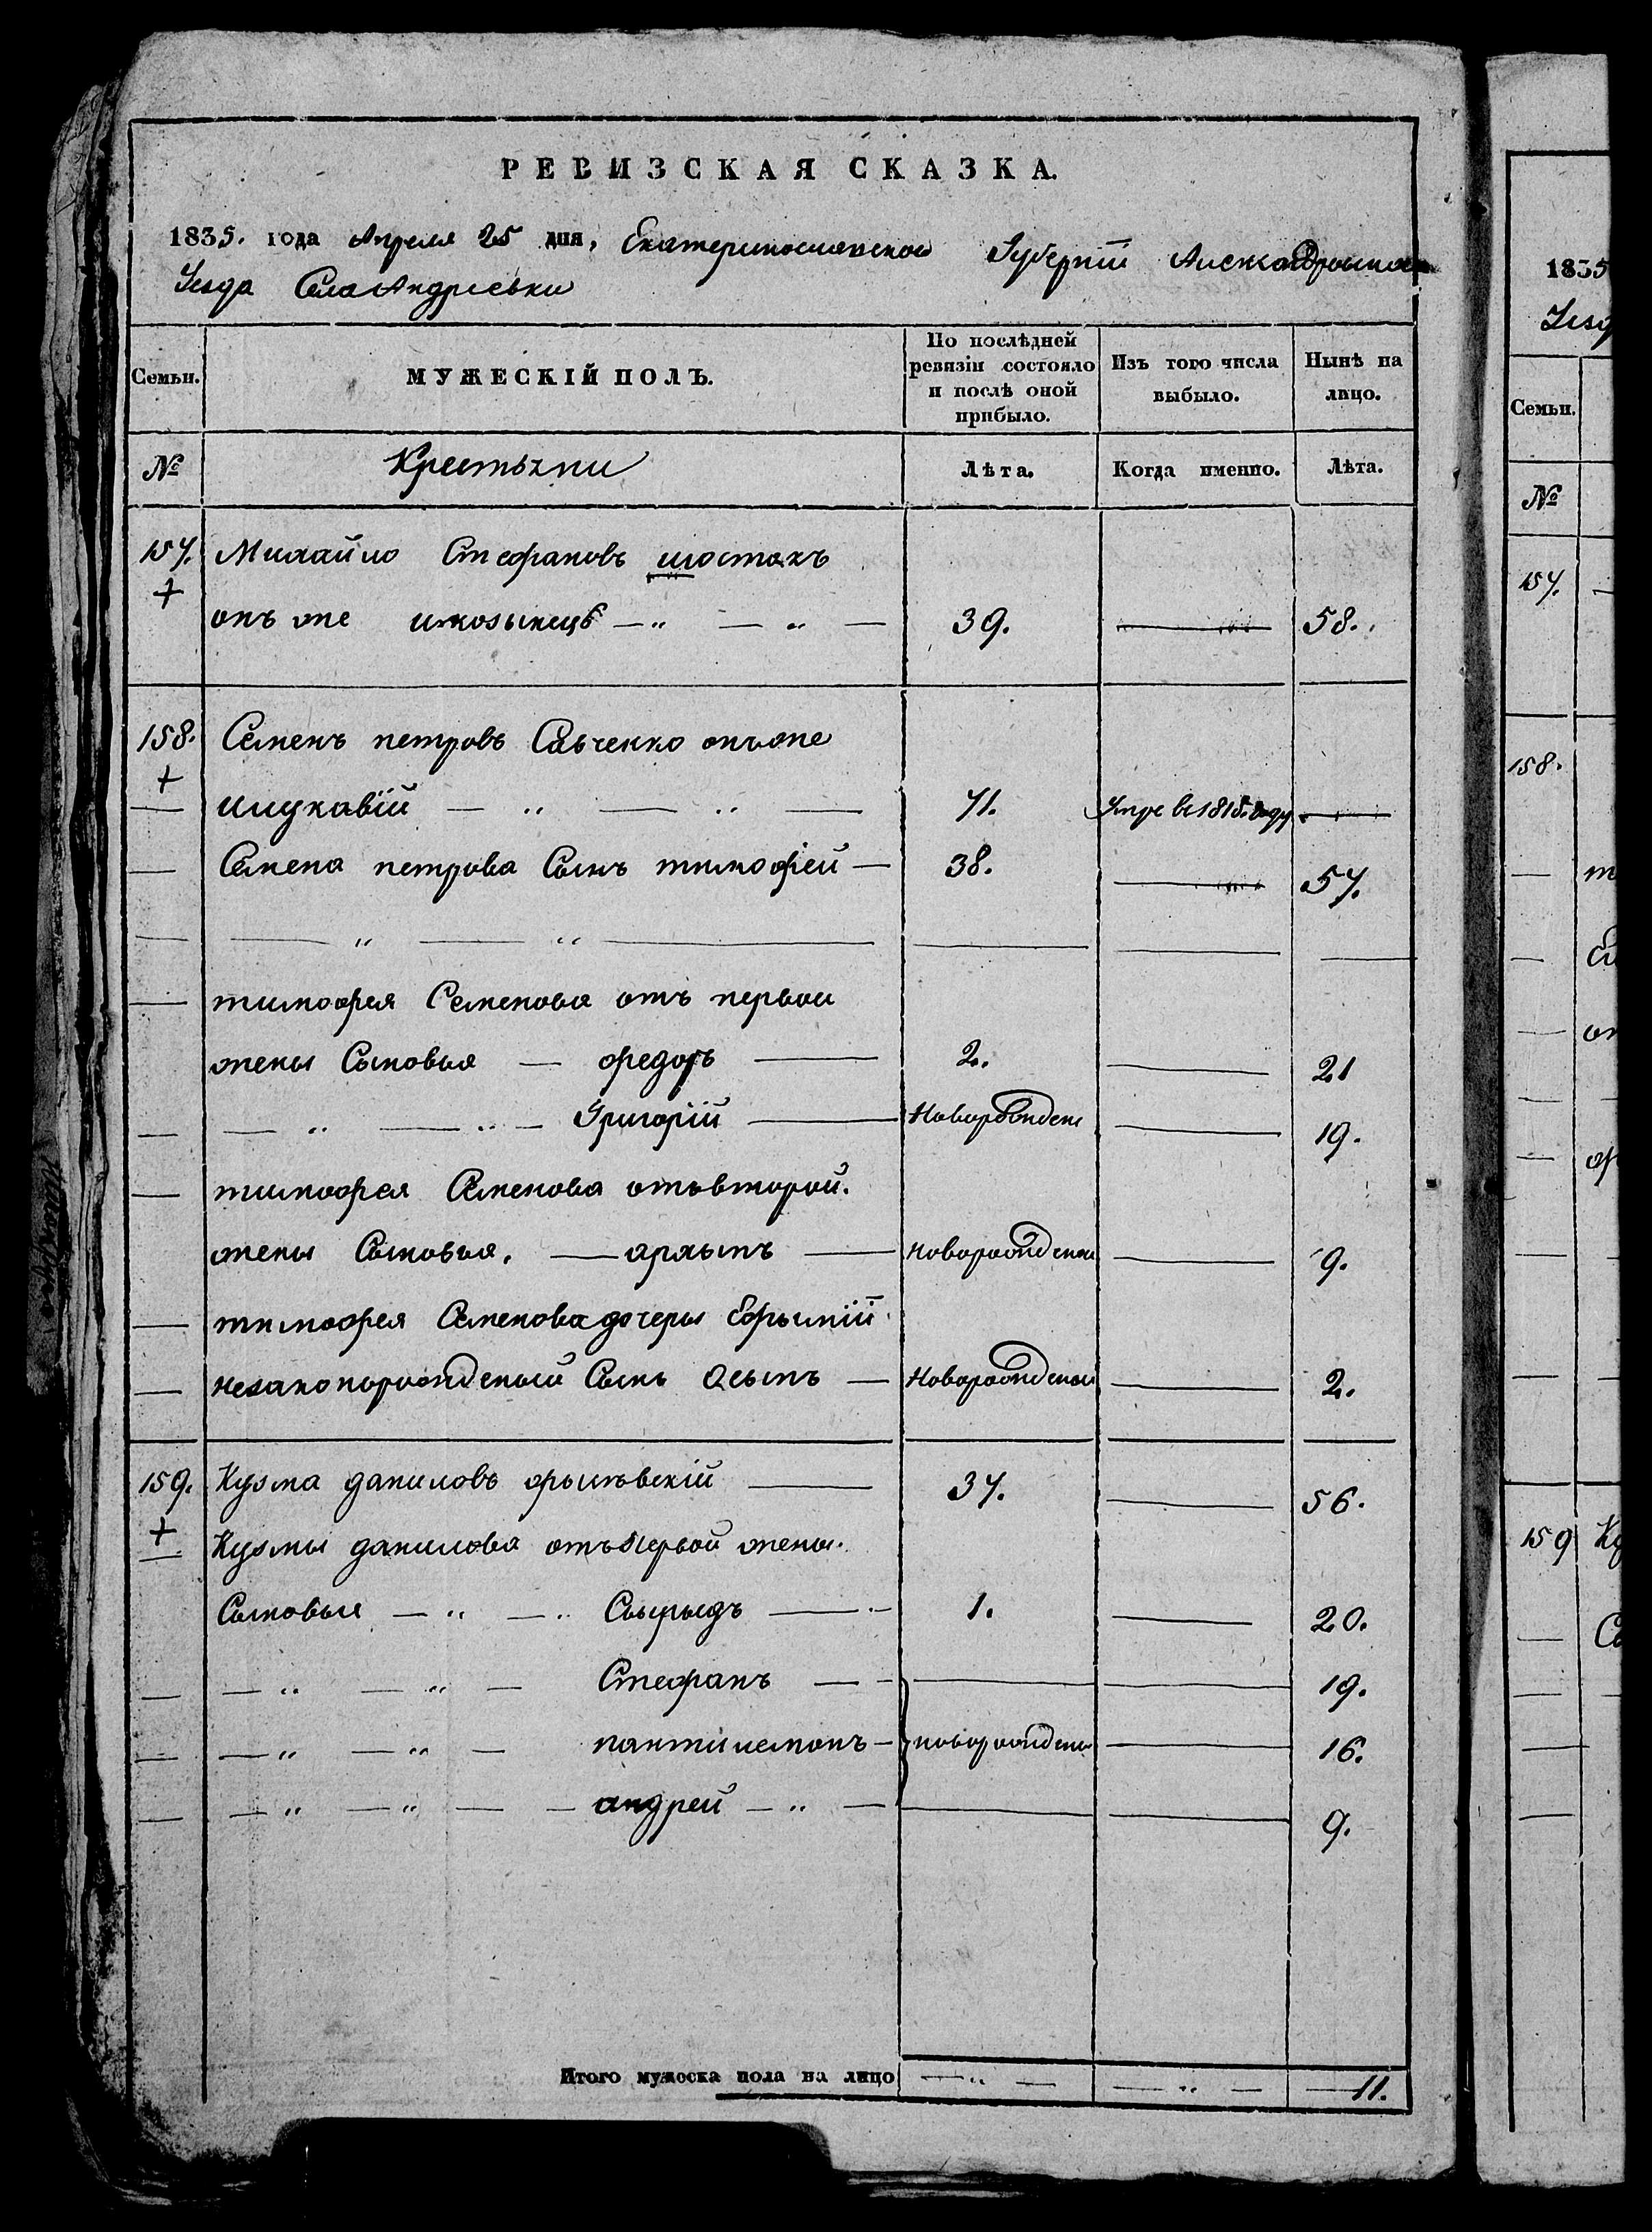 РЕВИЗСКАЯ СКАЗКА.
1835. года Апреля 25 дня, Екатеринославской Губерніи Александровскаго
Уезда Села Андреевки
Семьи. МУЖЕСКІЙ ПОЛЪ. По послѣдней ревизіи состояло и послѣ оной прибыло. Изъ того числа выбыло. Нынѣ на лицо.
№ Крестьяни Лѣта. Когда именно. Лѣта.
157. Михайло Стефановъ шостакъ
+ онъ же 39. 58.
158. Семенъ петровъ Савченко онъже
+ 71. Умре въ 1818. году
Семена петрова Сынъ тимофей 38. 57.
тимофея Семенова отъ первой
жены Сыновья федоръ 2. 21
Григорій Новорожден 19.
тимофея Семенова отъ второй.
жены Сыновья, архыпъ новорожденый 9.
тимофея Семенова дочеры Ефымій
незаконорожденый Сынъ Осыпъ Новорожденый 2.
159. Кузма даниловъ 37. 56.
+ Кузмы данилова отъ первой жены.
Сыновья Свырыдъ 1. 20.
Стефанъ 19.
пантилемонъ новорождены 16.
андрей 9.
Итого мужеска пола на лицо 11.
1835
Уезд
Семьи.
№
157.
158.
159 Ку